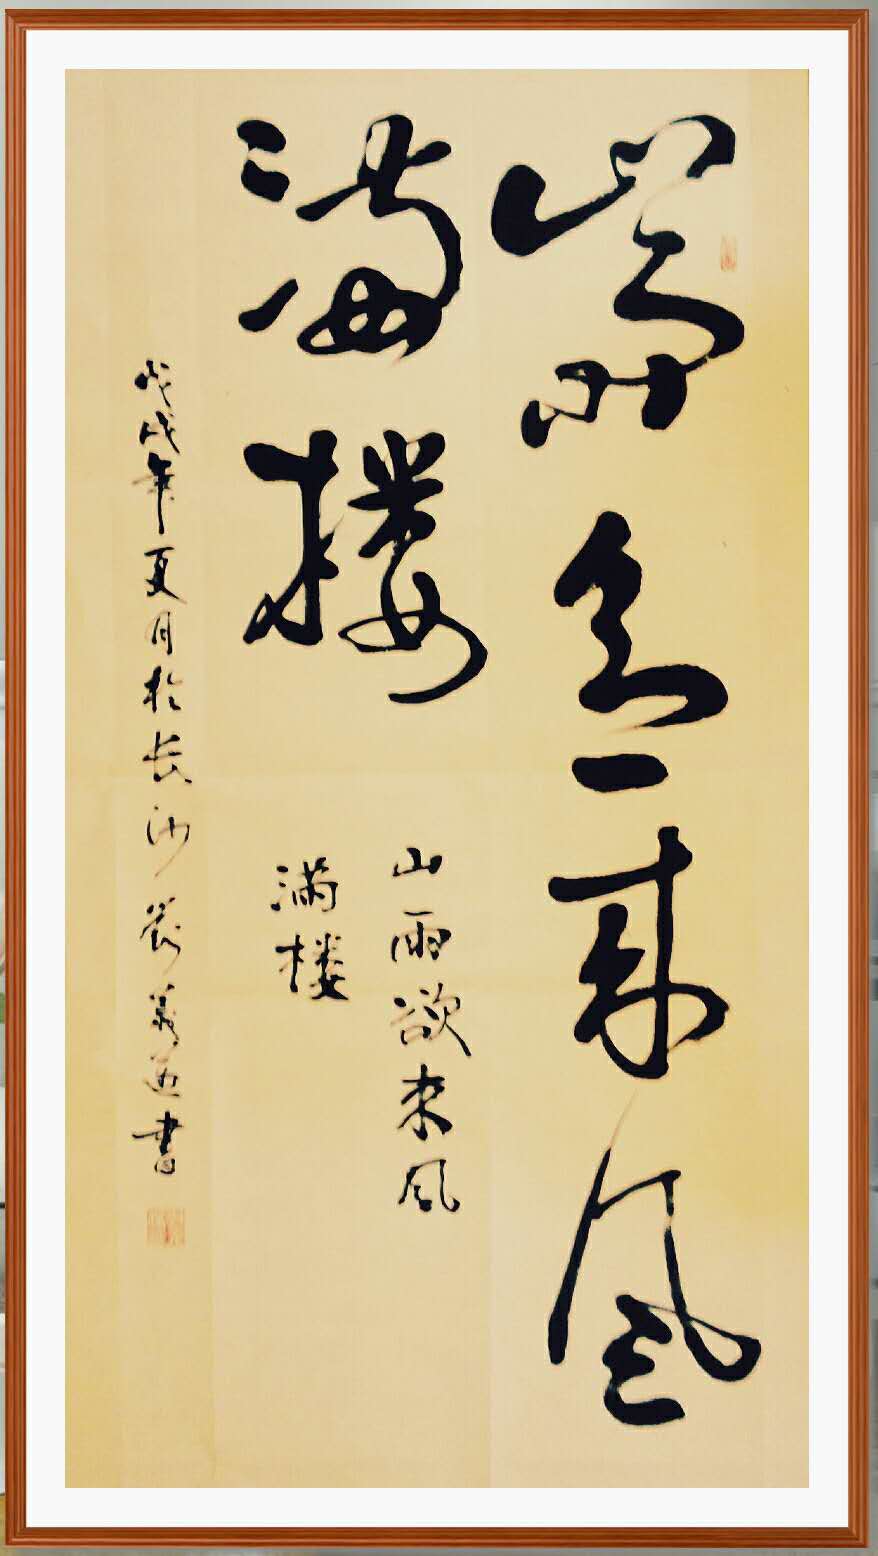 山雨欲来风
满楼
山雨欲来风
满楼
戊戌年夏月於长沙 书